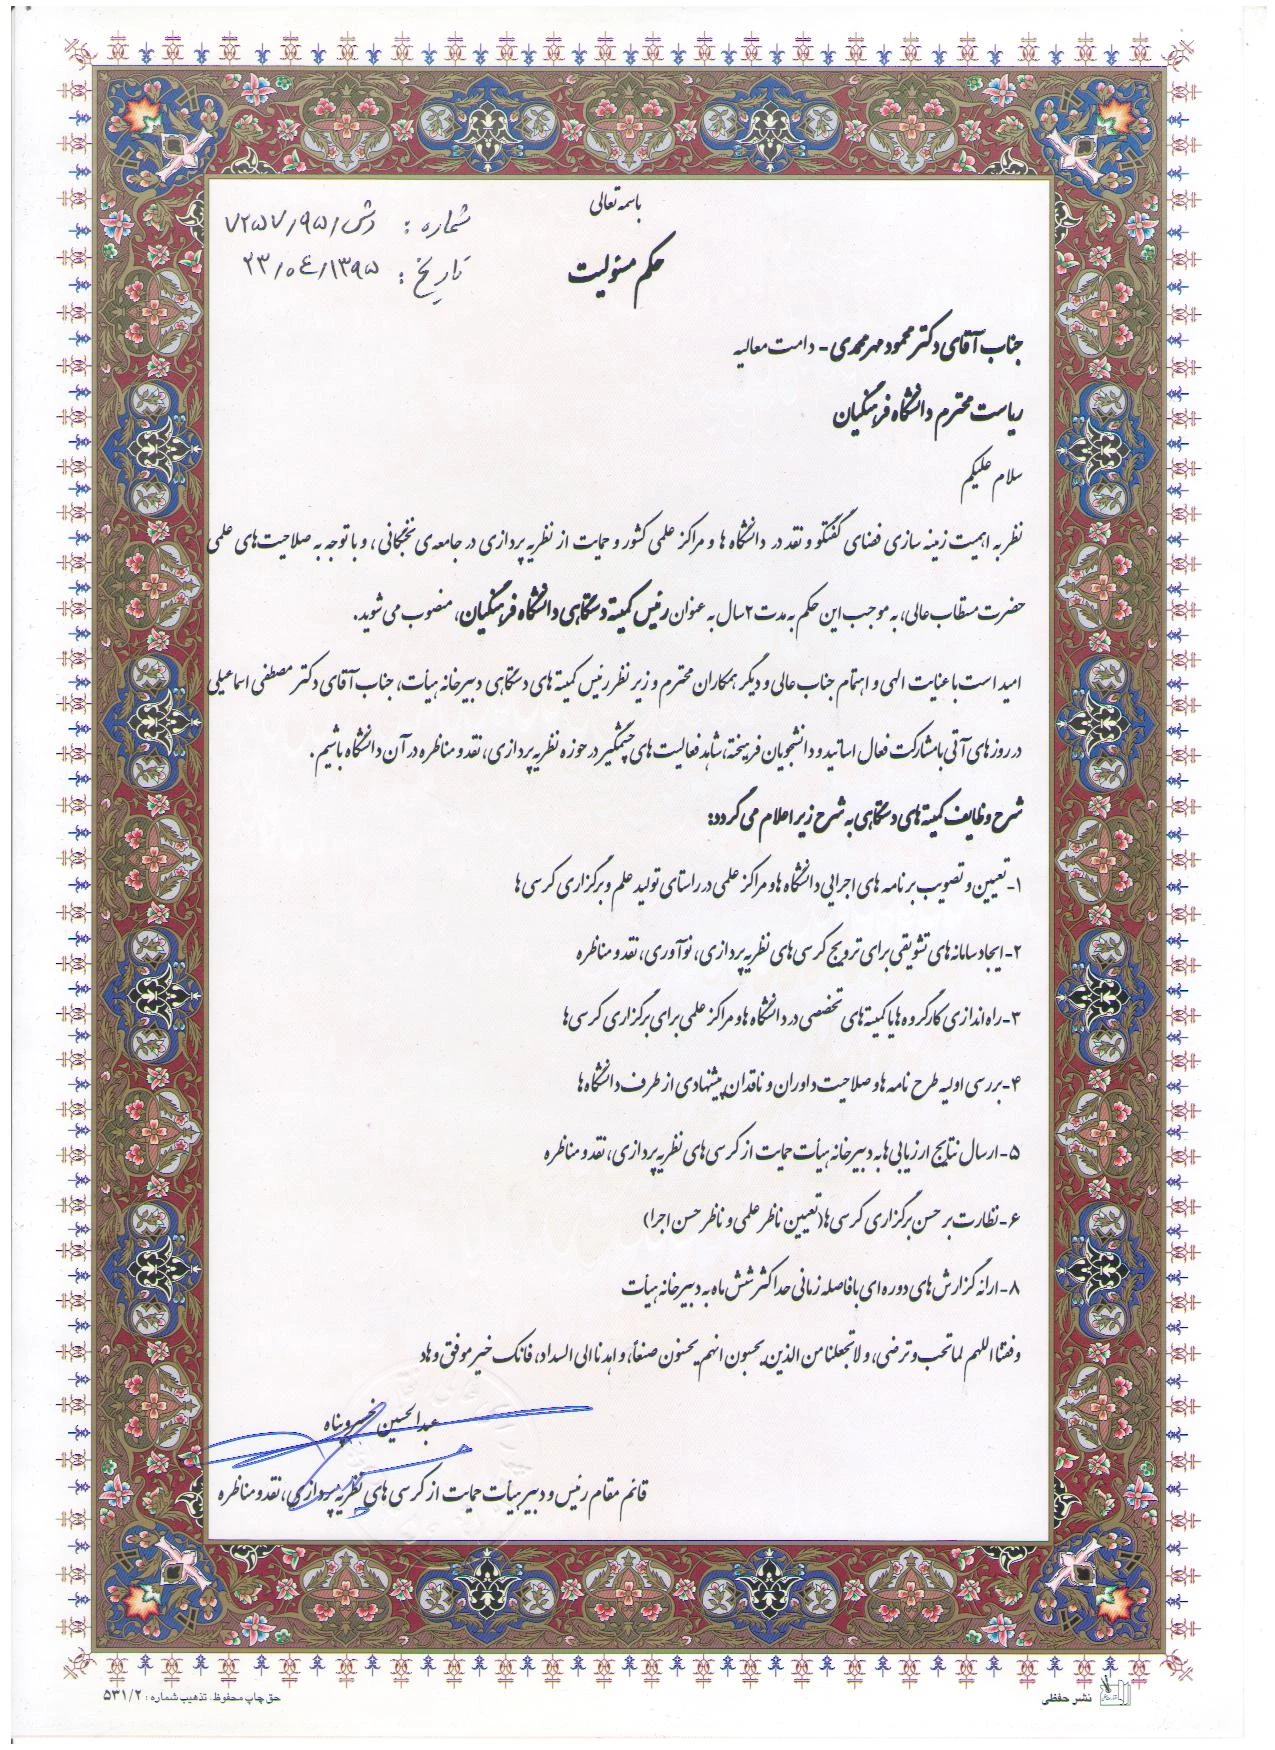 باسمه تعالی
شماره : دش/۹۵/۷۲۵۷
حکم مسئولیت
تاریخ : ۱۳۹۵/۰۴/۲۳
جناب آقای دکتر محمود مهرمحمدی - دامت معالیه
ریاست محترم دانشگاه فرهنگیان
سلام علیکم
نظر به اهمیت زمینه سازی فضای گفتگو و نقد در دانشگاه ها و مراکز علمی کشور و حمایت از نظریه پردازی در جامعه‌ی نخبگانی، و با توجه به صلاحیت‌های علمی
حضرت مستطاب عالی، به موجب این حکم به مدت ۲ سال به عنوان رئیس کمیته دستگاهی دانشگاه فرهنگیان، منصوب می شوید.
امید است با عنایت الهی و اهتمام جناب عالی و دیگر همکاران محترم و زیر نظر رئیس کمیته های دستگاهی دبیرخانه هیأت، جناب آقای دکتر مصطفی اسماعیلی
در روزهای آتی با مشارکت فعال اساتید و دانشجویان فریخته، شاهد فعالیت های چشمگیر در حوزه نظریه پردازی، نقد و مناظره در آن دانشگاه باشیم.
شرح وظایف کمیته های دستگاهی به شرح زیر اعلام می گردد:
۱- تعیین و تصویب برنامه های اجرایی دانشگاه ها و مراکز علمی در راستای تولید علم و برگزاری کرسی ها
۲- ایجاد سامانه های تشویقی برای ترویج کرسی های نظریه پردازی، نوآوری، نقد و مناظره
۳- راه اندازی کارگروه ها یا کمیته های تخصصی در دانشگاه ها و مراکز علمی برای برگزاری کرسی ها
۴- بررسی اولیه طرح نامه ها و صلاحیت داوران و ناقدان پیشنهادی از طرف دانشگاه ها
۵- ارسال نتایج ارزیابی ها به دبیرخانه هیأت حمایت از کرسی های نظریه پردازی، نقد و مناظره
۶- نظارت بر حسن برگزاری کرسی ها (تعیین ناظر علمی و ناظر حسن اجرا)
۸- ارائه گزارش های دوره ای با فاصله زمانی حداکثر شش ماه به دبیرخانه هیأت
وفقنا اللهم لما تحب و ترضی، و لا تجعلنا من الذین یحسبون انهم یحسنون صنعاً، و اهدنا الی السداد، فانک خیر موفق و هاد
عبدالحسین خسروپناه
قائم مقام رئیس و دبیر هیأت حمایت از کرسی های نظریه پردازی، نقد و مناظره
نشر حفظی
حق چاپ محفوظ. تذهیب شماره : ۵۳۱/۲